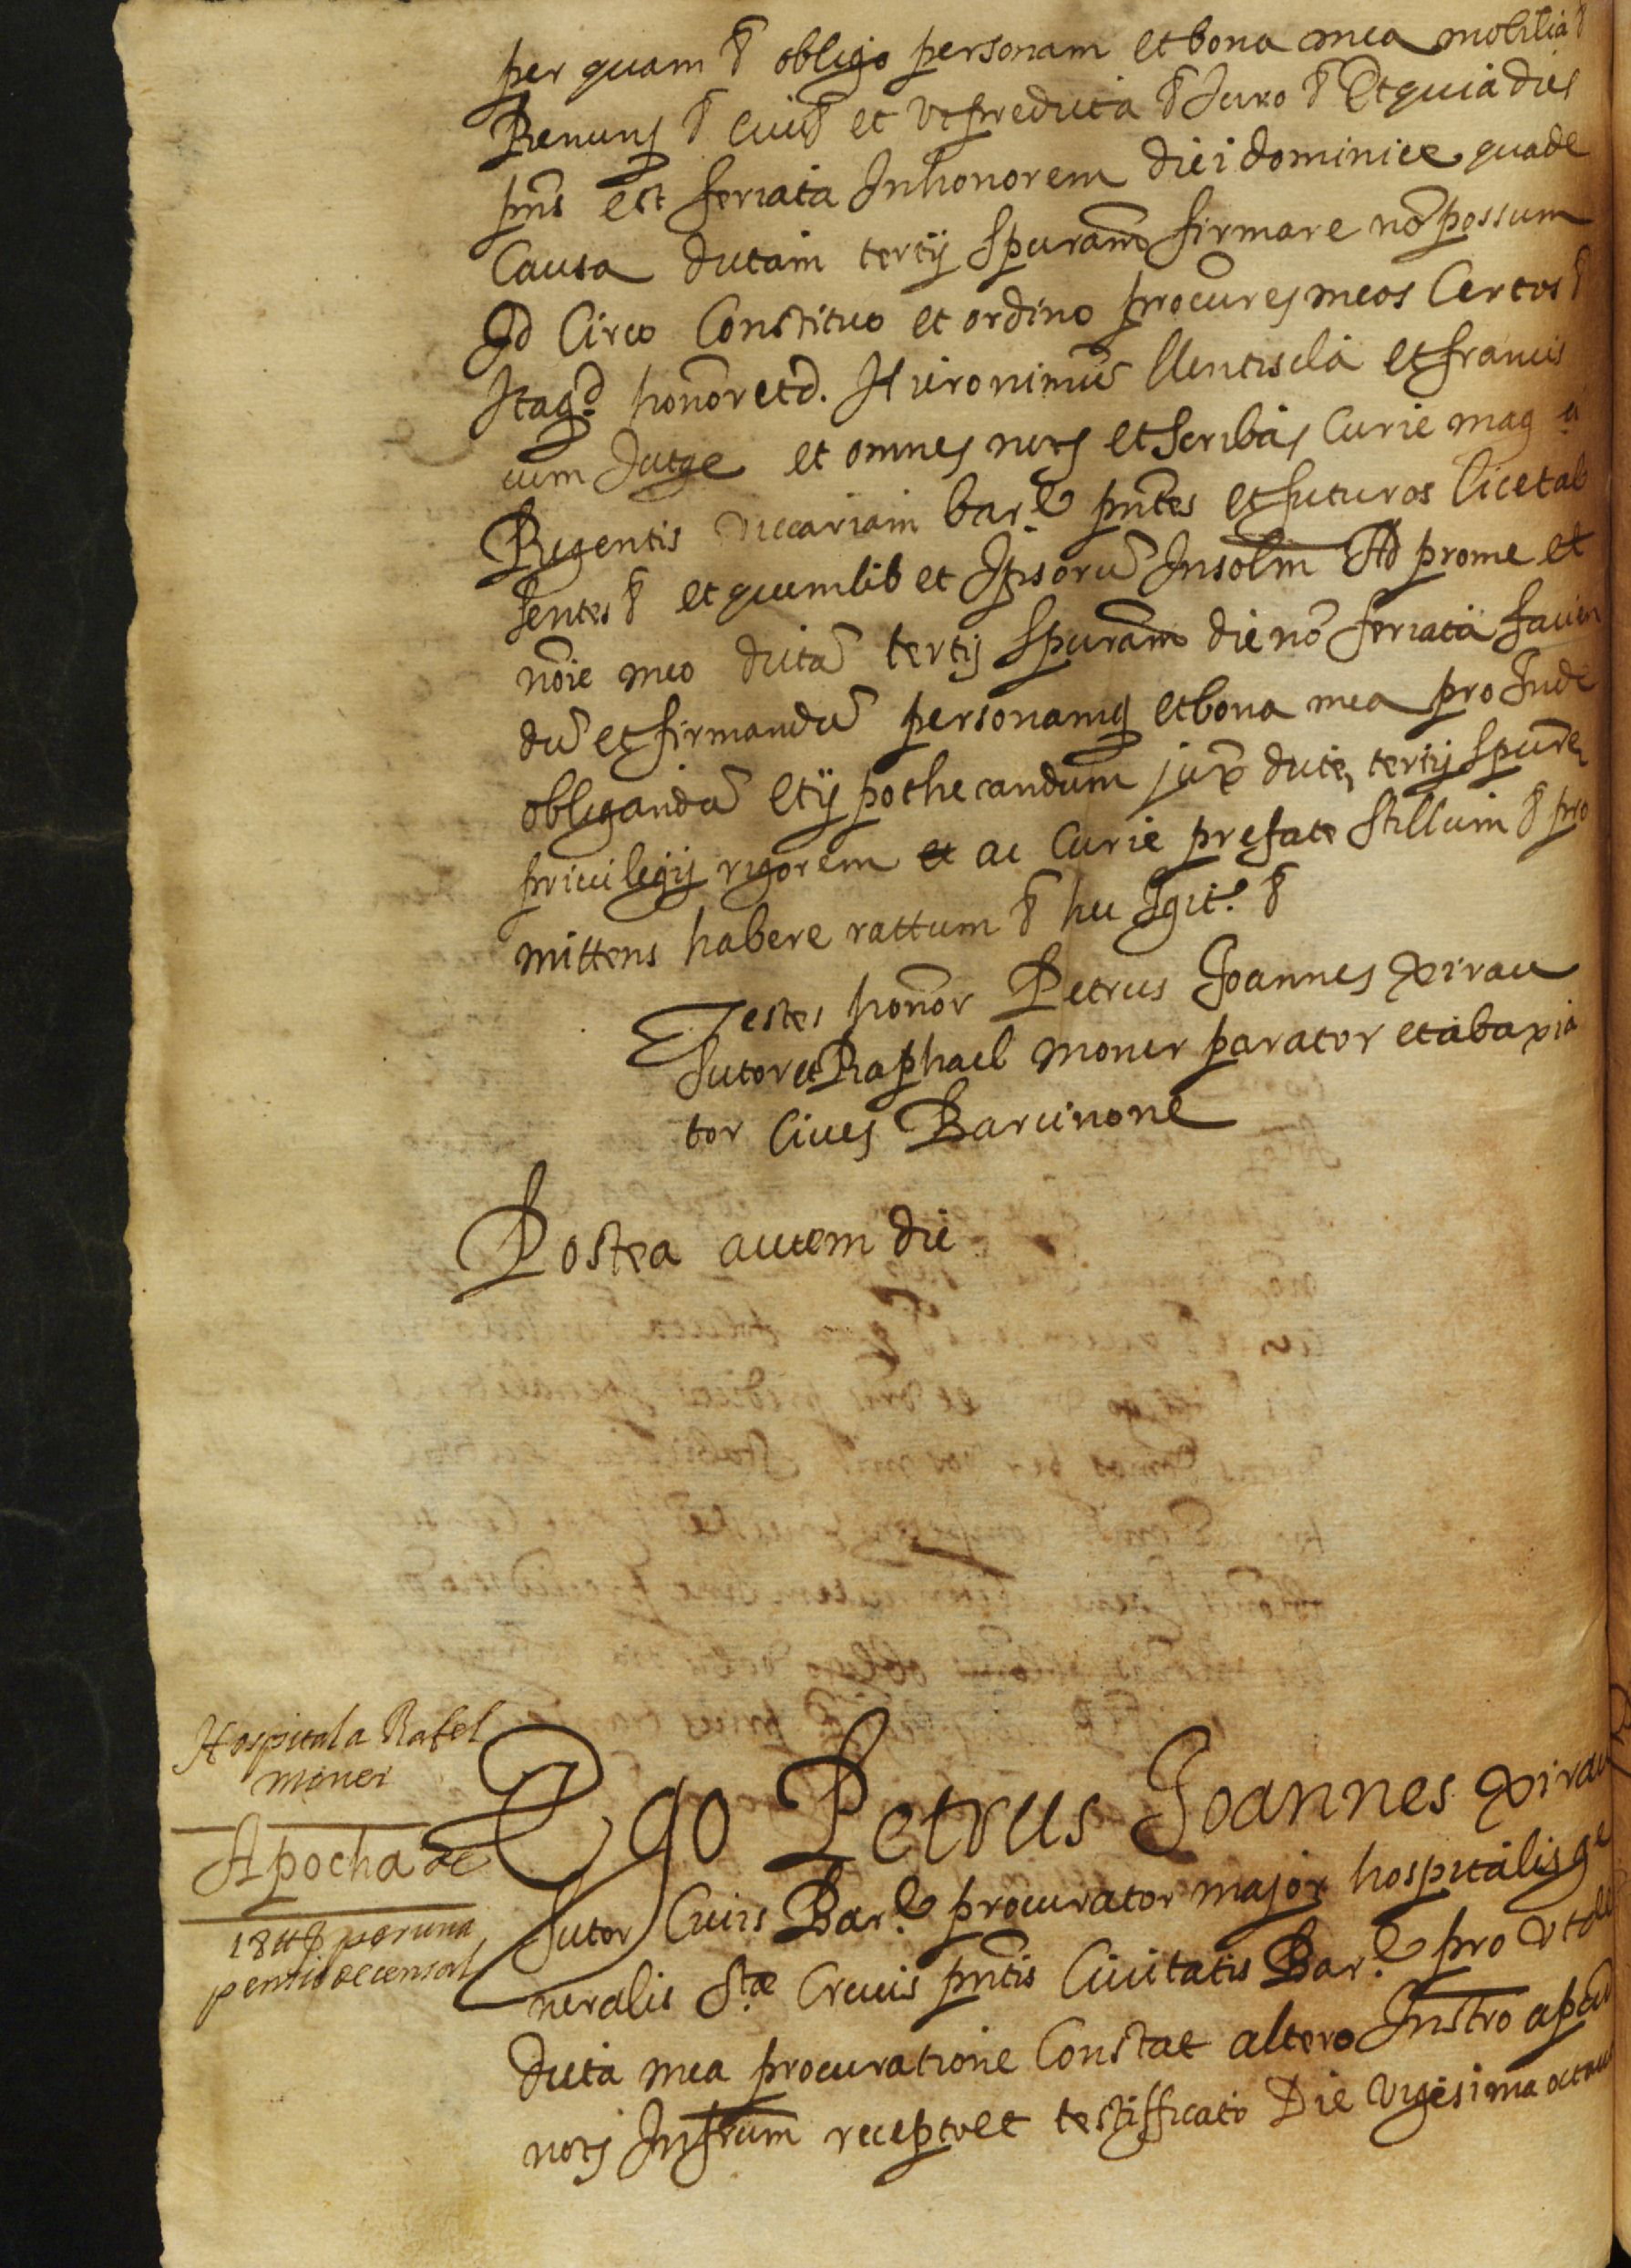 per quam & obligo personam et bona mea mobilia &
Renuns & Ciuiᵭ et vt predicta & Juro & Et quia dies
pñs est feriata In honorem diei dominice qua de
Causa dictam tertij Spuram̃ firmare nõ possum
Id Circo Constituo et ordino procur̃es meos Certos &
Itaq̃ honor et d. Hieronimũ llentiscla et francis
cum Jutge et omnes nors et scribas Curie mag.ci
Regentis viccariam bar.e pñtes et futuros licet ab
sentes & et quemlibet Ipsorũ Insolm Ad pro me et
nõie meo dictã tertij Spuram̃ die nõ feriata facien
dũ et firmandũ personamq et bona mea pro Inde
obligandũ et ypothecandum jux̃ dicte tertij Spure
priuilegij rigorem ac Curie prefate stillum & pro
mittens habere rattum & hec Igit.r &
Testes honor Petrus Joannes xirau
Sutor et Raphael moner parator et abaxia
tor Ciues Barcinone
Postea autem die
Hospital a Rafel
moner
Apocha de
18 ## per una
pensio de censal
Ego Petrus Joannes xirau
Sutor Ciuis Bar.e procurator major hospitalis ge
neralis S.te Crucis pñtis Ciuitatis Bar.e pro vt de
dicta mea procuratione Constat altero Instro apud
nors Infrum recepto et testifficato Die vigesima octaua